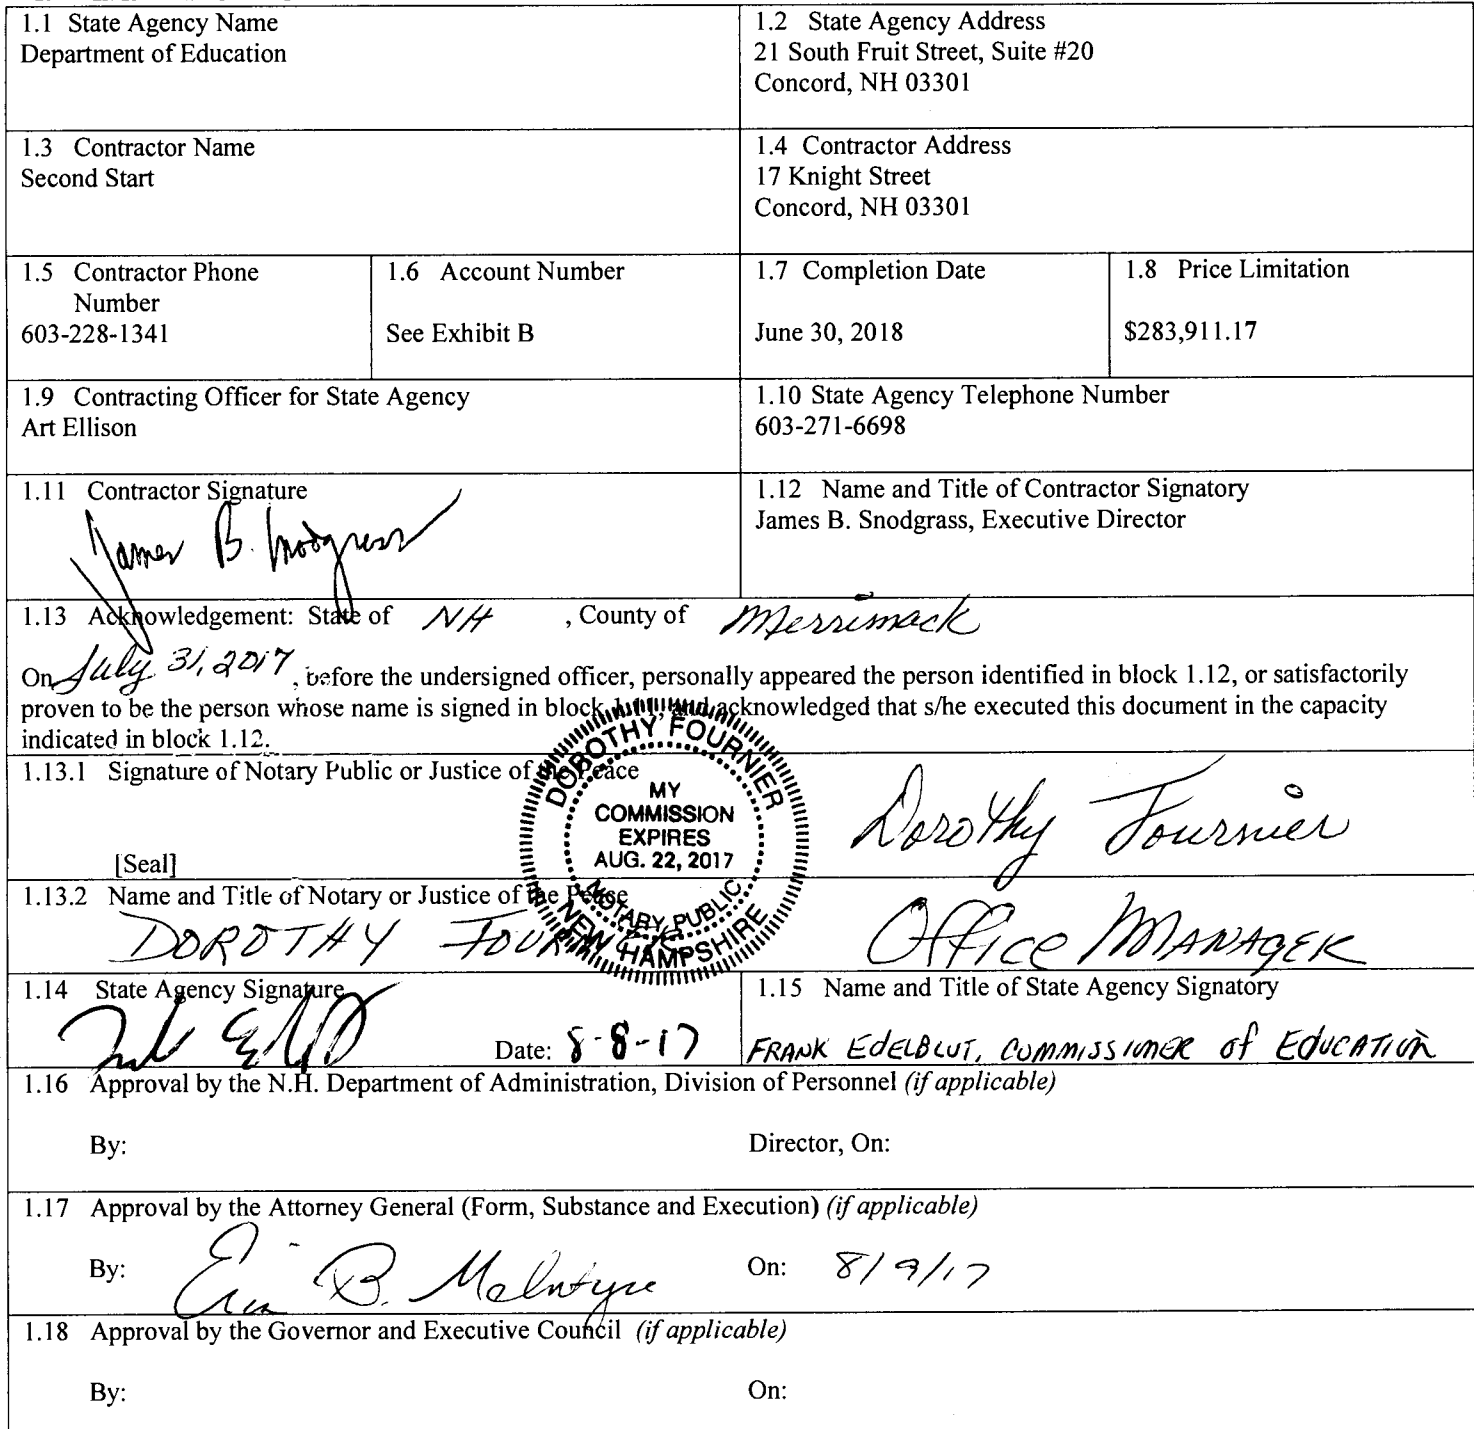 1.1 State Agency Name
Department of Education
1.2 State Agency Address
21 South Fruit Street, Suite #20
Concord, NH 03301
1.3 Contractor Name
Second Start
1.4 Contractor Address
17 Knight Street
Concord, NH 03301
1.5 Contractor Phone
Number
603-228-1341
1.6 Account Number
See Exhibit B
1.7 Completion Date
June 30, 2018
1.8 Price Limitation
$283,911.17
1.9 Contracting Officer for State Agency
Art Ellison
1.10 State Agency Telephone Number
603-271-6698
1.11 Contractor Signature
James B. Snodgrass
1.12 Name and Title of Contractor Signatory
James B. Snodgrass, Executive Director
1.13 Acknowledgement: State of NH , County of Merrimack
On July 31, 2017, before the undersigned officer, personally appeared the person identified in block 1.12, or satisfactorily
proven to be the person whose name is signed in block 1.11, and acknowledged that s/he executed this document in the capacity
indicated in block 1.12.
1.13.1 Signature of Notary Public or Justice of the Peace
Dorothy Fournier
[Seal]
DOROTHY FOURNIER
MY
COMMISSION
EXPIRES
AUG. 22, 2017
NOTARY PUBLIC
NEW HAMPSHIRE
1.13.2 Name and Title of Notary or Justice of the Peace
DOROTHY FOURNIER Office MANAGER
1.14 State Agency Signature
Date: 8-8-17
1.15 Name and Title of State Agency Signatory
FRANK EDELBLUT, COMMISSIONER of EDUCATION
1.16 Approval by the N.H. Department of Administration, Division of Personnel (if applicable)
By: Director, On:
1.17 Approval by the Attorney General (Form, Substance and Execution) (if applicable)
By: Erin B. McIntyre On: 8/9/17
1.18 Approval by the Governor and Executive Council (if applicable)
By: On: